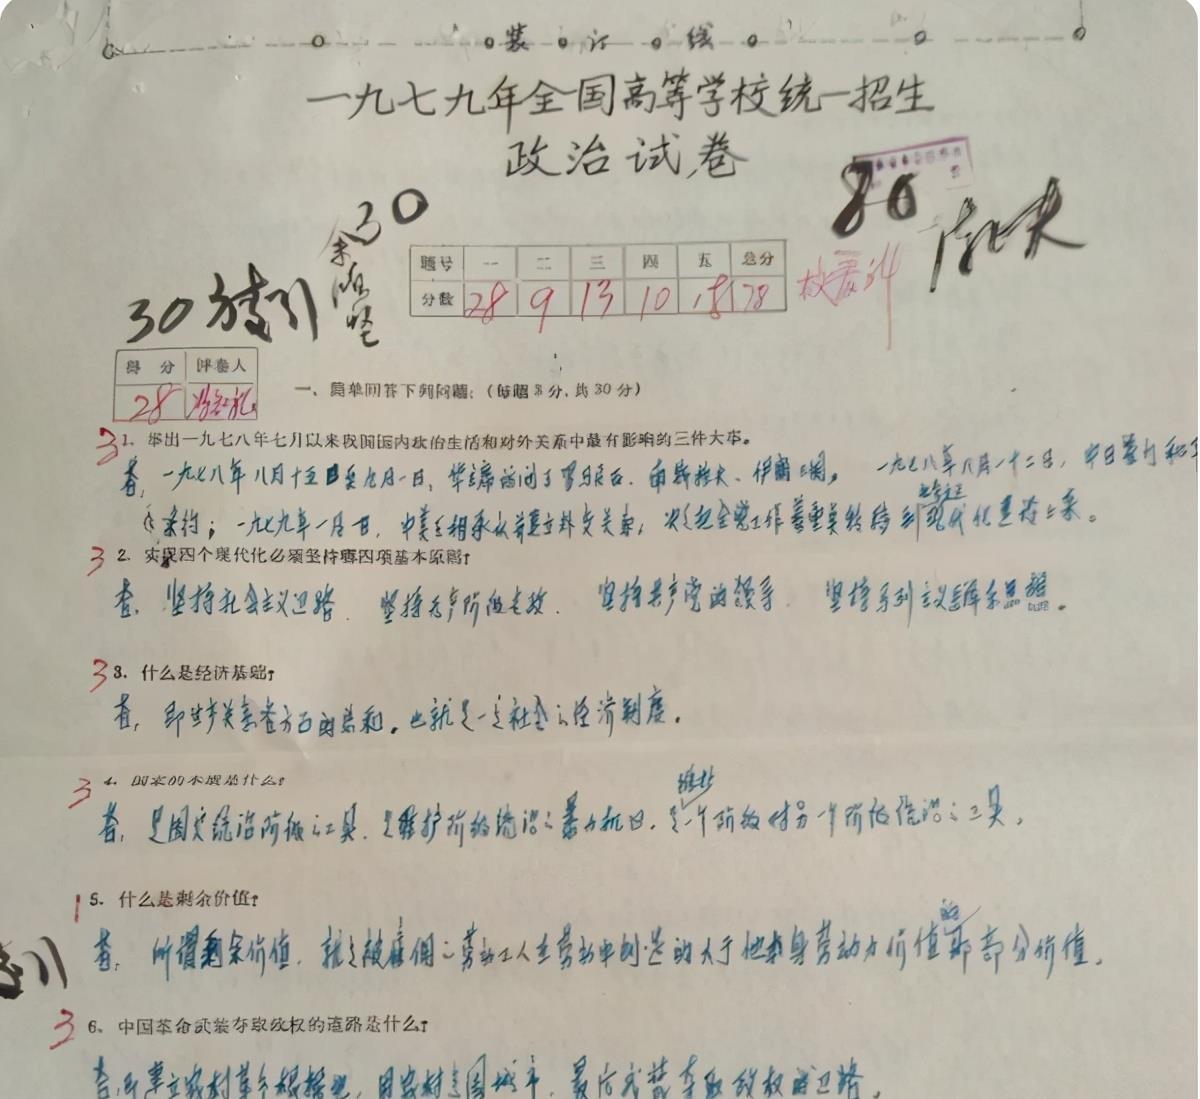 装订线
一九七九年全国高等学校统一招生
政治试卷
30
80
30
题号 一 二 三 四 五 总分
分数 28 9 13 10 18 78
得分 评卷人
28
一、简单回答下列问题：（每题3分，共30分）
3 1．举出一九七八年七月以来我国国内政治生活和对外关系中最有影响的三件大事。
答，一九七八年八月十五日至九月一日，华主席访问了罗马尼亚、南斯拉夫、伊朗三国。一九七八年八月十二日，中日签订和平
条约；一九七九年一月一日，中美互相承认并建立外交关系；决定把全党工作着重点转移到现代化建设上来。
3 2．实现四个现代化必须坚持哪四项基本原则？
答，坚持社会主义道路、坚持无产阶级专政、坚持共产党的领导、坚持马列主义毛泽东思想。
3 3．什么是经济基础？
答，即生产关系各方面的总和。也就是一定社会的经济制度。
3 4．国家的本质是什么？
答，是国家统治阶级的工具，是维护阶级统治的暴力机器，是一个阶级对另一个阶级统治的工具。
1 5．什么是剩余价值？
答，所谓剩余价值，就是被雇佣的劳动工人在劳动中创造的大于他本身劳动力价值的那部分价值。
3 6．中国革命武装夺取政权的道路是什么？
答，即建立农村革命根据地，用农村包围城市，最后武装夺取政权的道路。